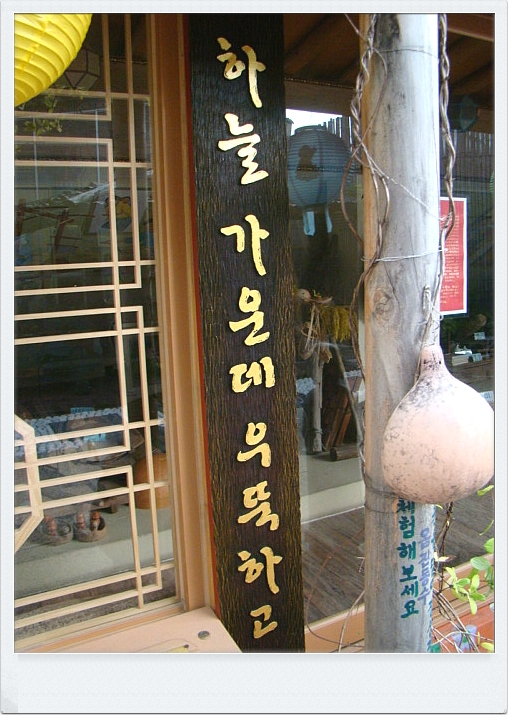 하늘 가운데 우뚝하고
체험해보세요